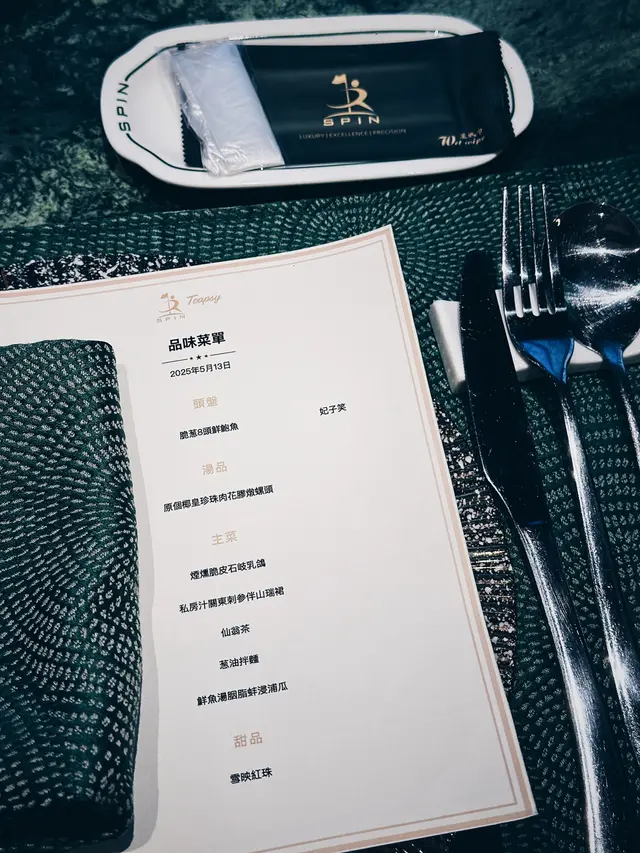 SPIN
SPIN
LUXURY | EXCELLENCE | PRECISION
SPIN
Teapsy
品味菜單
2025年5月13日
頭盤
脆葱8頭鮮鮑魚
妃子笑
湯品
原個椰皇珍珠肉花膠燉螺頭
主菜
煙燻脆皮石岐乳鴿
私房汁關東刺參伴山瑞裙
仙翁茶
葱油拌麵
鮮魚湯胭脂蚌浸浦瓜
甜品
雪映紅珠